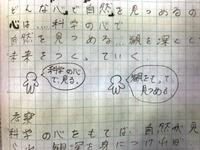 どんな心で自然を見つめるの
心は……科学の心で
自然を見つめる……観を深く
未来をつく、ていく
科学の心で
観をもって
見つめる
考察
科学の心をもては、自然が見